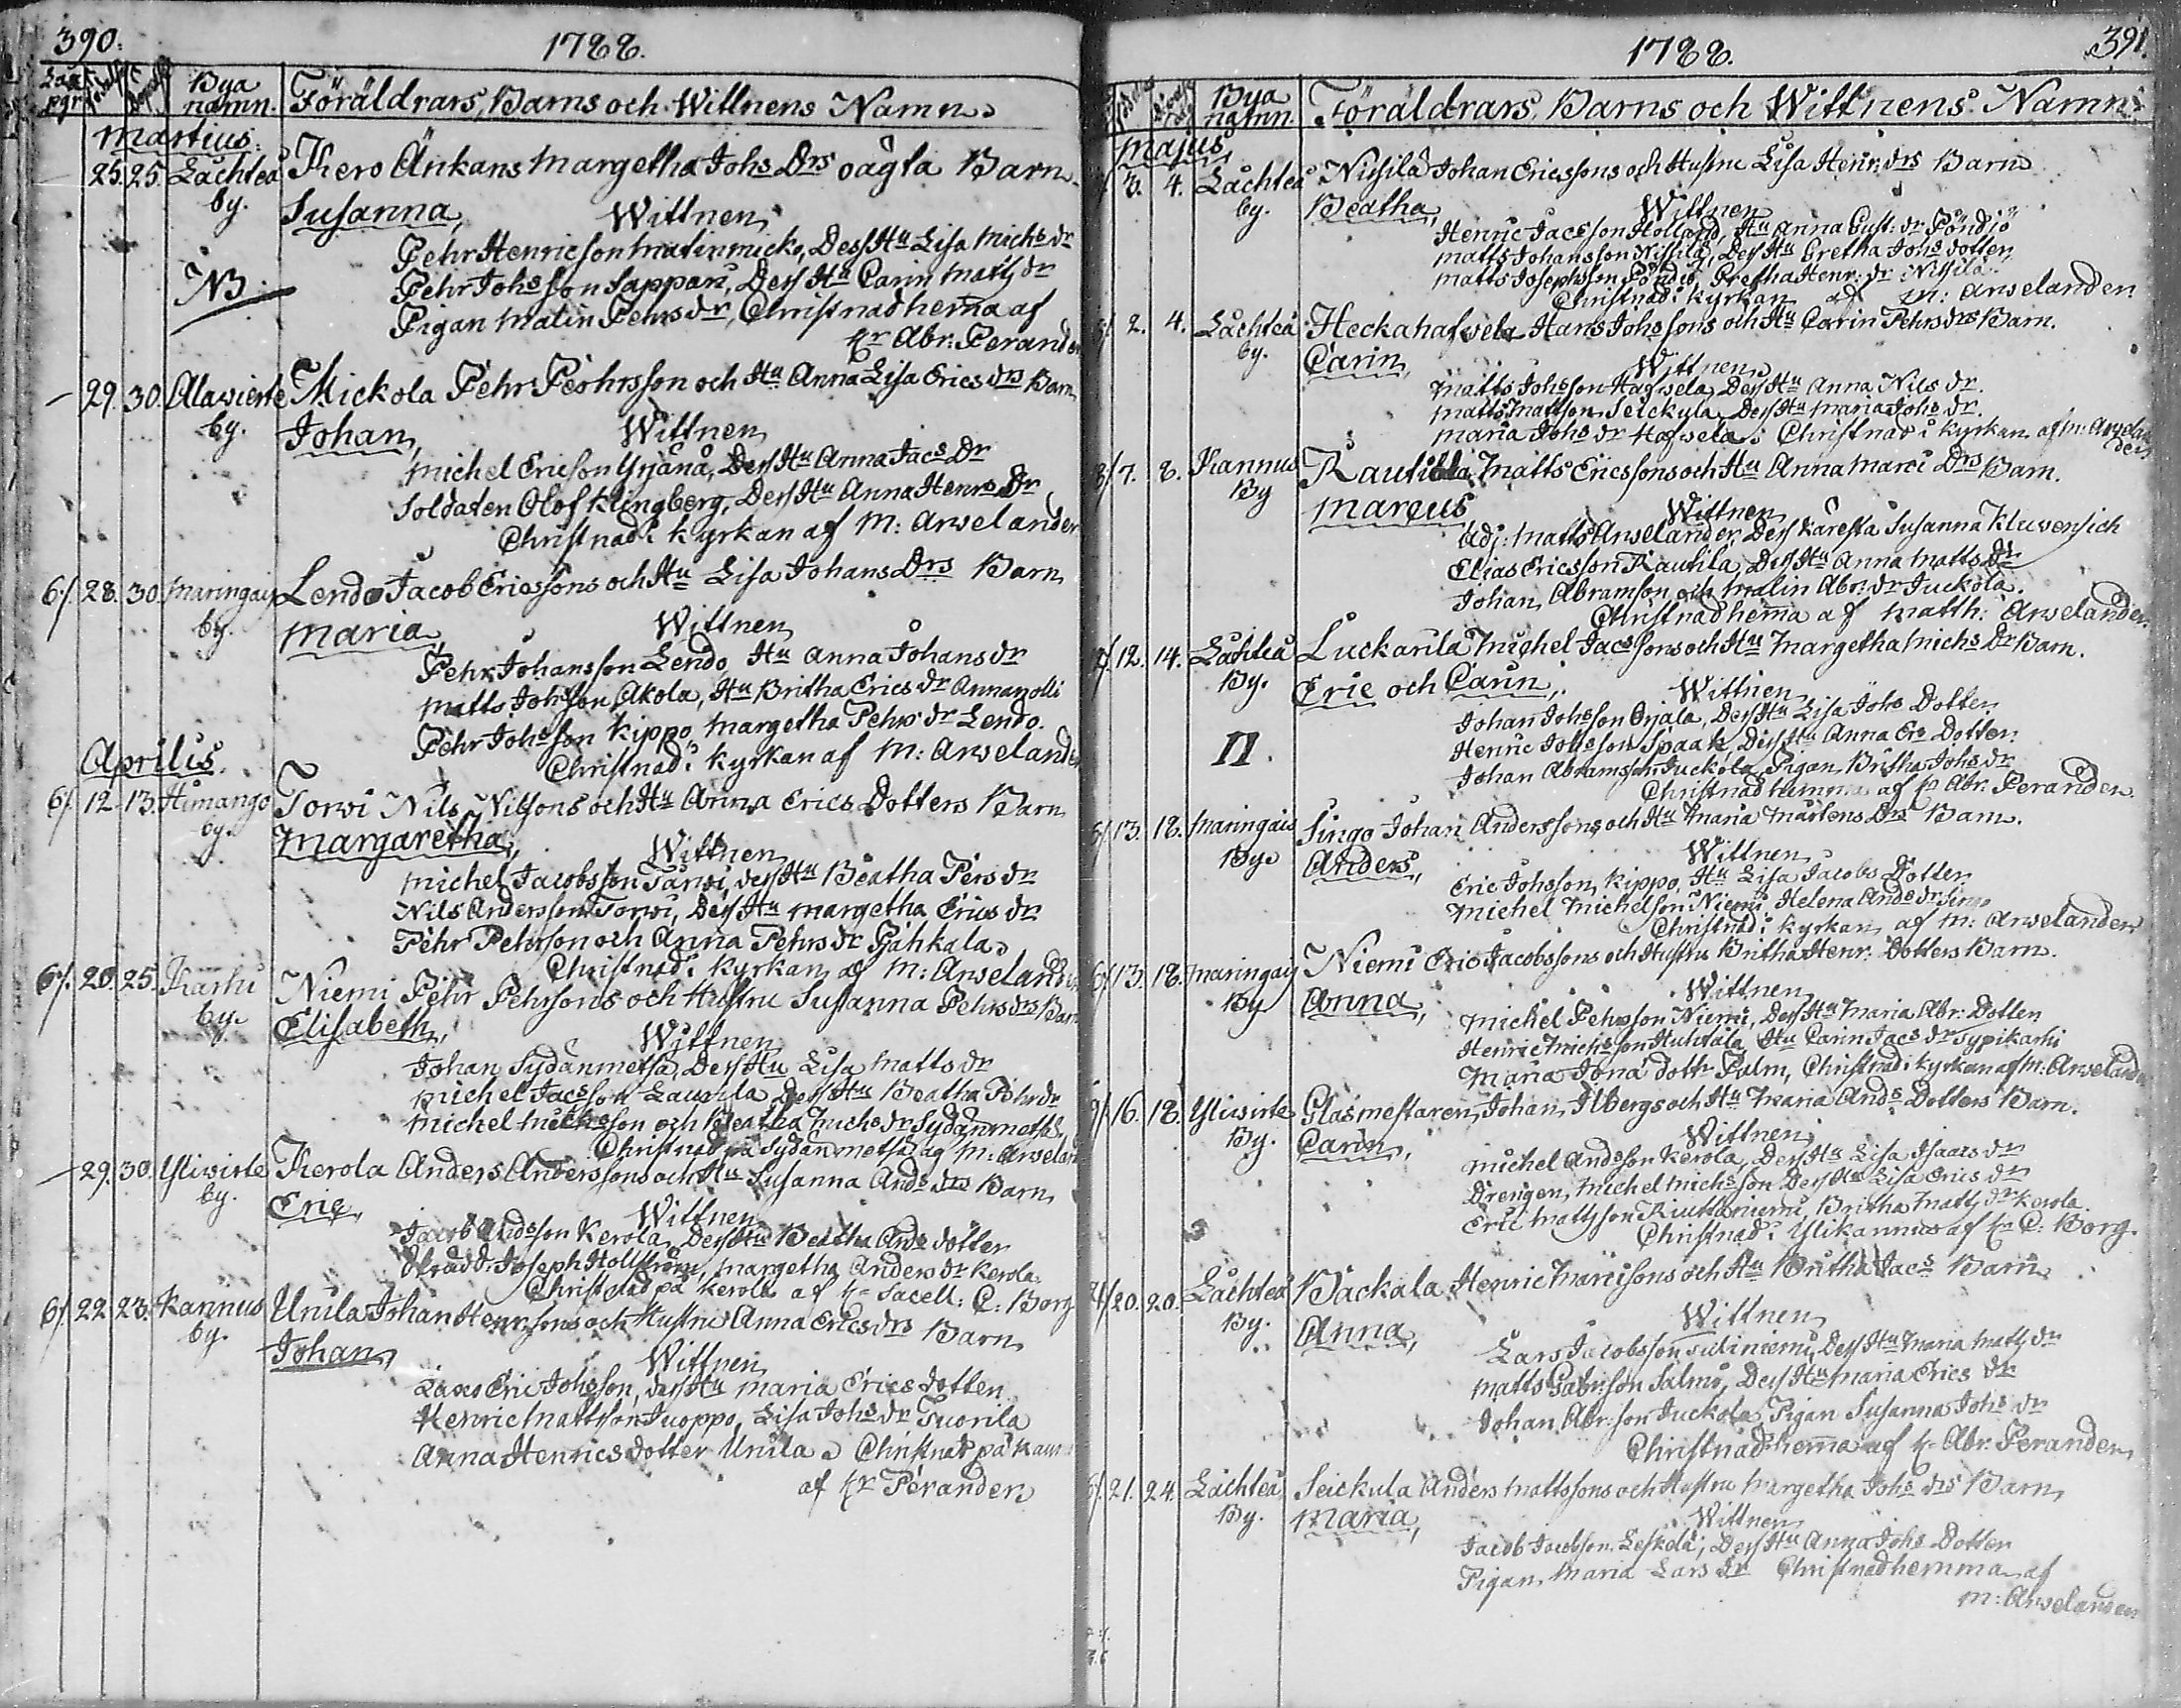 390.
1788.
Bya namn. Föräldrars, Barns och Wittnens Namn
Martius.
25. 25. Lachteå by. Kero Änkans Margetha Johs Drs oägta Barn
Susanna, Wittnen
Pehr Henricson Matinmicko, Dess Hu Lisa Michs dr
NB. Pehr Johsson Sappari, Dess Hu Carin Matts dr
Pigan Malin Pehrs dr, Christnad hemma af
Hr Abr: Perander
29. 30. Alawierte by. Mickola Pehr Pehrsson och Hu Anna Lisa Erics drs Barn
Johan, Wittnen
Michel Ericson Yrjänä, Dess Hu Anna Jacs Dr
Soldaten Olof Klingberg, Dess Hu Anna Henrs Dr
Christnad i kyrkan af M: Arwelander
6/. 28. 30. Maringais by. Lendo Jacob Ericssons och Hu Lisa Johans Drs Barn
Maria, Wittnen
Pehr Johansson Lendo Hu Anna Johans dr
Matts Johsson Akola, Hu Britha Erics dr Annanolli
Pehr Johsson Kippo, Margetha Pehrs dr Lendo.
Christnad i kyrkan af M: Arwelander
Aprilis.
6/. 12. 13. Himango by. Torwi Nils Nilsons och Hu Anna Erics Dotters Barn
Margaretha, Wittnen
Michel Jacobsson Torwi, dess Hu Beatha Pers dr
Nils Andersson Torwi, Dess Hu Margetha Erics dr
Pehr Pehrson och Anna Pehrs dr Pjähkala
Christnad i kyrkan af M: Arwelander
6/. 20. 25. Karhi by. Niemi Pehr Pehrsons och Hustru Susanna Pehrs drs Barn
Elisabeth, Wittnen
Johan Sydänmetsä, Dess Hu Lisa Matts dr
Michel Jacsson Laurila Dess Hu Beatha Pehrs dr
Michel Michsson och Beatha Michs dr Sydänmetsä.
Christnad på Sydänmetsä af M: Arwelander
29. 30. Yliwirte by. Kerola Anders Anderssons och Hu Susanna Ands drs Barn
Eric, Wittnen
Jacob Andsson Kerola, Dess Hu Beatha Ands dotter
Skrädd: Joseph Hollström, Margetha Anders dr Kerola.
Christnad på Kerola af Hr Sacell: C: Borg
6/ 22. 23. Kannus by. Unila Johan Henrsons och Hustru Anna Erics drs Barn
Johan, Wittnen
Eric Johsson, dess Hu Maria Erics dotter
Henric Mattsson Juoppo, Lisa Johs dr Tuorila
Anna Henrics dotter Unila Christnad på
af Hr Perander
391.
1788.
Bya namn. Föräldrars, Barns och Wittnens Namn
Majus
3. 4. Låchteå by. Nissilä Johan Ericssons och Hustru Lisa Henr. drs Barn
Beatha, Wittnen
Henric Jacsson Holland, Hu Anna Gust: dr Pöndiö
Matts Johansson Nissilä, Dess Hu Gretha Johs dotter
Matts Josephsson Pöndiö, Gretha Henr: dr Nissilä.
Christnad i kyrkan af M: Arwelander
2. 4. Låchteå by. Heckahafwela Hans Johssons och Hu Carin Pehrs drs Barn.
Carin, Wittnen
Matts Johsson Hafwela, Dess Hu Anna Nils dr
Matts Mattson Seickula, Dess Hu Maria Johs dr.
Maria Johs dr Hafwela. Christnad i kyrkan af M: Arwelander
7. 8. Kannus By Rautila Matts Ericssons och Hu Anna Marci Drs Barn.
Marcus Wittnen
Adj: Matts Arwelander, Dess käresta Susanna Kluwensich
Elias Ericsson Rautila, Dess Hu Anna Matts Dr
Johan Abramson och Malin Abr: dr Juckola.
Christnad hemma af Matth: Arwelander.
12. 14. Lachteå By. Luckarila Michel Jacssons och Hu Margetha Michs Dr Barn.
Eric och Carin, Wittnen
Johan Johsson Orjala, Dess Hu Lisa Johs Dotter
II. Henric Johsson Spaak, Dess Hu Anna Ers Dotter
Johan Abramsson Juckola, Pigan Britha Johs dr
Christnad hemma af Hr Abr. Perander.
13. 18. Maringais By. Singo Johan Anderssons och Hu Maria Mårtens Drs Barn.
Anders, Wittnen
Eric Johsson Kippo, Hu Lisa Jacobs Dotter
Michel Michelson Niemi Helena Ands dr Singo
Christnad i kyrkan af M: Arwelander
6/ 13. 18. Maringais By Niemi Eric Jacobssons och Hustru Britha Henr: Dotters Barn.
Anna, Wittnen
Michel Pehrsson Niemi, Dess Hu Maria Abr: Dotter
Henric Michsson Huhtala, Hu Carin Jacs dr Typikarhi
Maria Jona dottr Palm, Christnad i kyrkan af M: Arwelander
16. 18. Yliwirte By. Glasmestaren Johan Ilbergs och Hu Maria Ands Dotters Barn.
Carin, Wittnen
Michel Andsson Kerola, Dess Hu Lisa Isaacs dr
Drengen Michel Michsson Dess Hu Lisa Erics dr
Eric Mattsson Riuttaniemi, Britha Matts dr Kerola.
Christnad i Ylikannus af Hr C: Borg.
20. 20. Låchteå By. Backala Henric Marcisons och Hu Britha Jacs Barn
Anna, Wittnen
Lars Jacobsson Dess Hu Maria Matts dr
Matts Gabr:son Salmo, Dess Hu Maria Erics dr
Johan Abr:son Juckola Pigan Susanna Johs dr
Christnad hemma af Hr Abr. Perander
21. 24. Låchteå By. Seickula Anders Mattssons och Hustru Margetha Johs drs Barn
Maria, Wittnen
Jacob Jacobson Leskelä, Dess Hu Anna Johs Dotter
Pigan Maria Lars dr Christnad hemma af
M: Arwelander